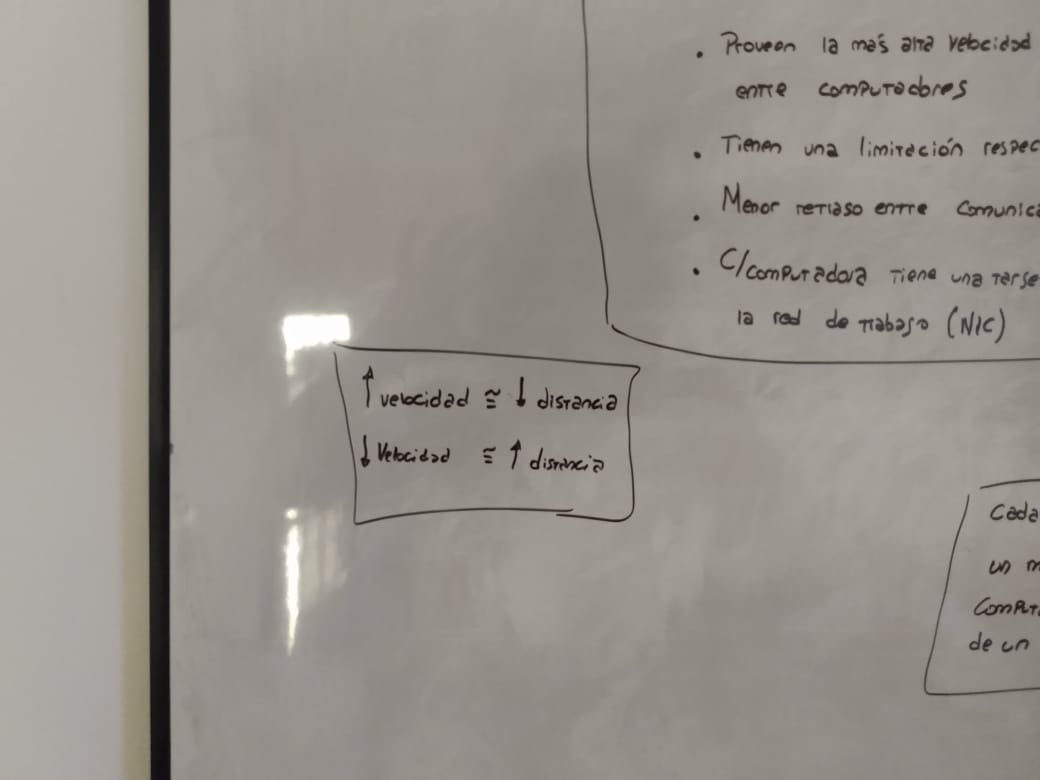 • Proveen la más alta velocidad
entre computadores
• Tienen una limitación respec
• Menor retraso entre comunica
• C/computadora tiene una tarje
la red de trabajo (NIC)
↑ velocidad ≅ ↓ distancia
↓ Velocidad ≅ ↑ distancia
Cada
un m
Comput
de un